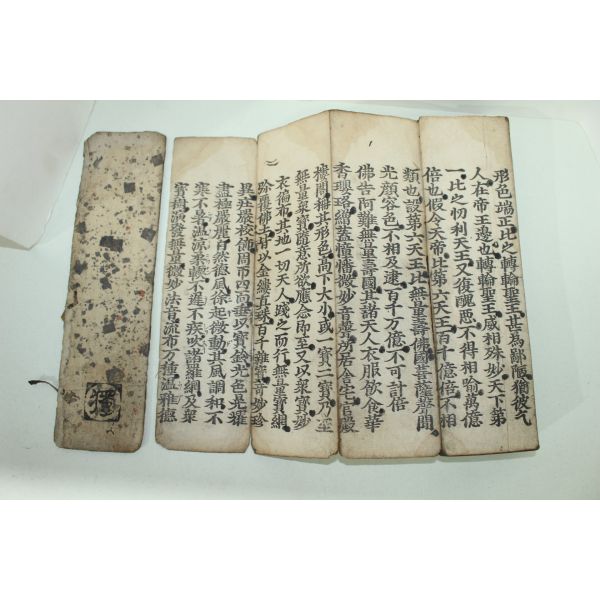 形色端正比之轉輪聖王甚為鄙陋猶彼乞
人在帝王邊也轉輪聖王威相殊妙天下第
一比之忉利天王又復醜惡不得相喻萬億
倍也假令天帝比第六天王百千億倍不相
類也設第六天王比無量壽佛國菩薩聲聞
光顏容色不相及逮百千万億不可計倍
佛告阿難無量壽國其諸天人衣服飲食華
香瓔珞繒蓋幢幡微妙音聲所居舍宅宮殿
樓閣稱其形色高下大小或一寶二寶乃至
無量眾寶隨意所欲應念即至又以眾寶妙
衣徧布其地一切天人踐之而行無量寶網
彌覆佛土皆以金縷真珠百千雜寶奇妙珍
異莊嚴校飾周帀四面垂以寶鈴光色晃耀
盡極嚴麗自然德風徐起微動其風調和不
寒不暑溫涼柔輭不遲不疾吹諸羅網及眾
寶樹演發無量微妙法音流布万種溫雅德